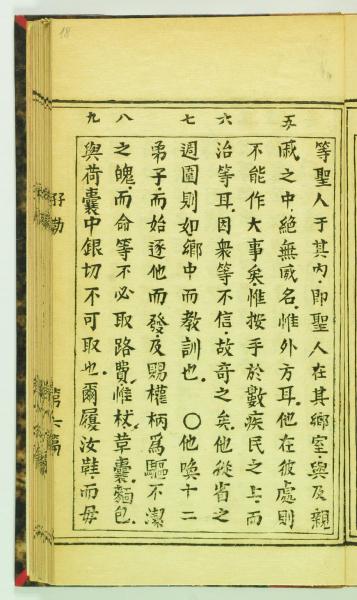 18
五 六 七 八 九
等聖人于其內即聖人在其鄉室與及親
戚之中絕無威名惟外方耳他在彼處則
不能作大事矣惟按手於數疾民之上而
治等耳因衆等不信故奇之矣他從省之
週圍則如鄉中而教訓也〇他喚十二
弟子而始逐他而發及賜權柄為驅不潔
之魄而命等不必取路費惟杖草囊麵包
與荷囊中銀切不可取也爾履汝鞋而毋
第六篇